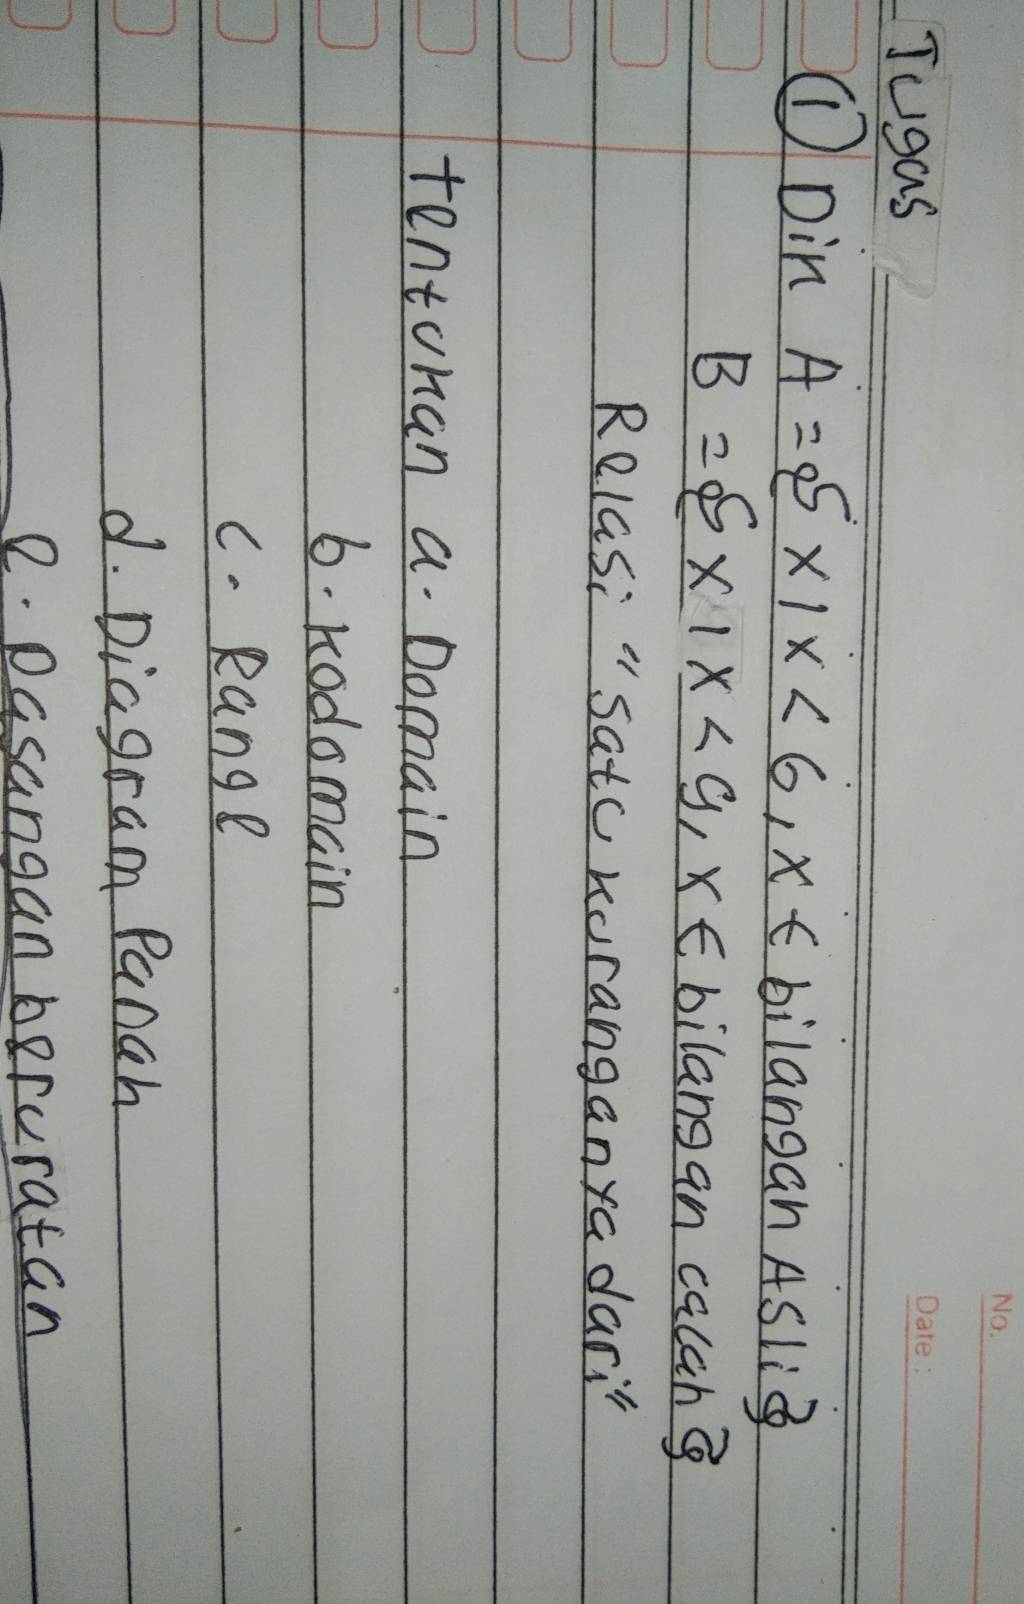 No.
Date :
Tugas
① Din A = { x | x < 6, x ∈ bilangan Asli }
B = { x | x < 9, x ∈ bilangan cacah }
Relasi "satu kuranganya dari"
tentukan a. Domain
b. kodomain
c. Range
d. Diagram Panah
e. Pasangan berurutan